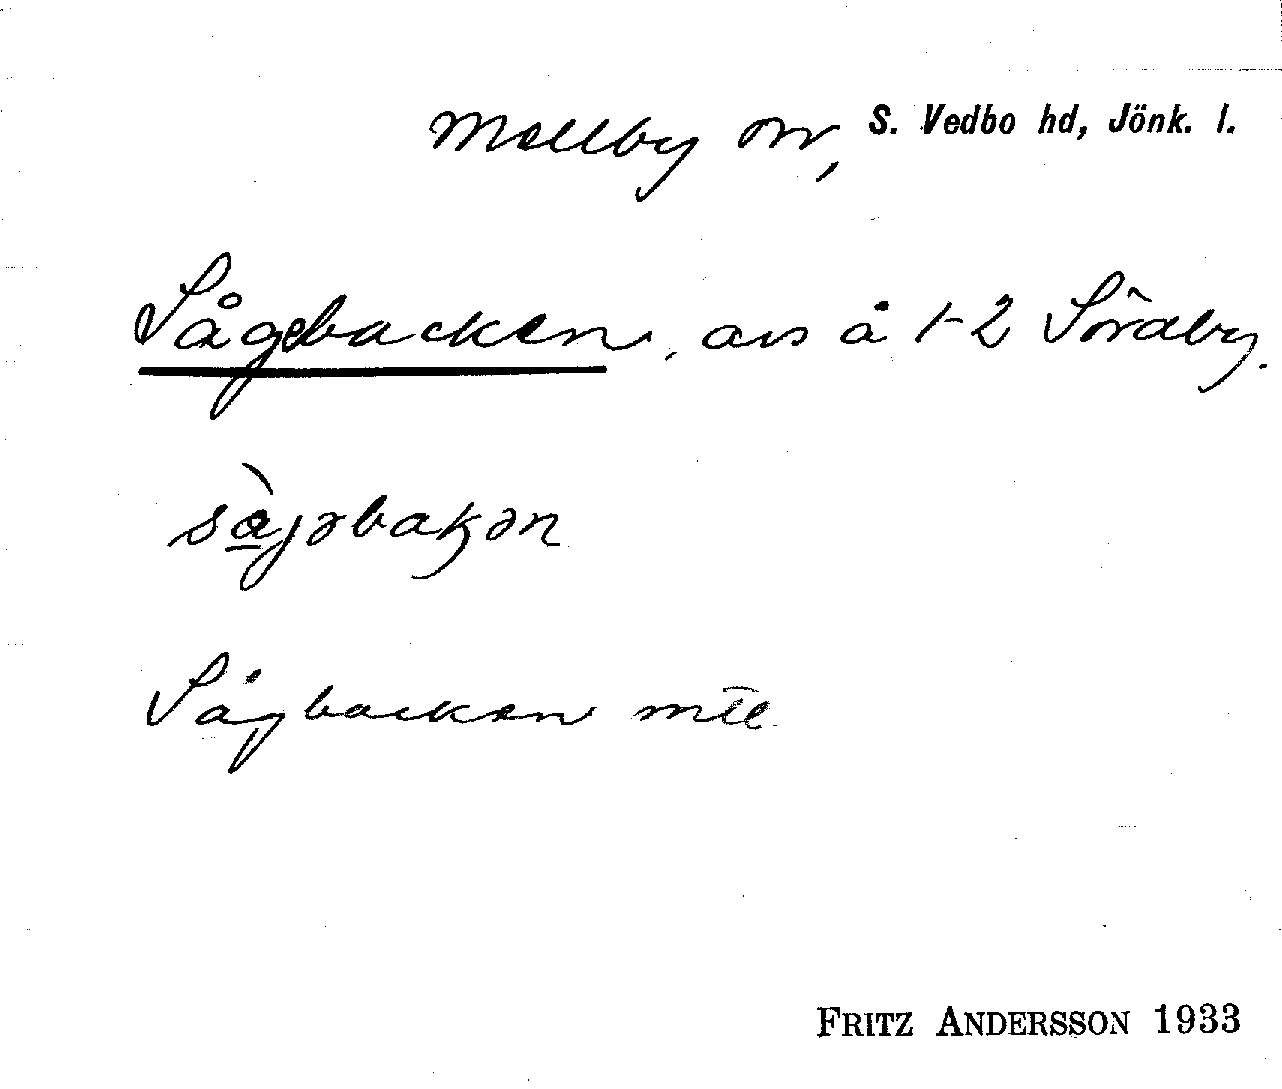 Mellby sn, S. Vedbo hd, Jönk. l.
Sågebacken, avs å 1-2 Söraby.
Sågbacken mtl
FRITZ ANDERSSON 1933